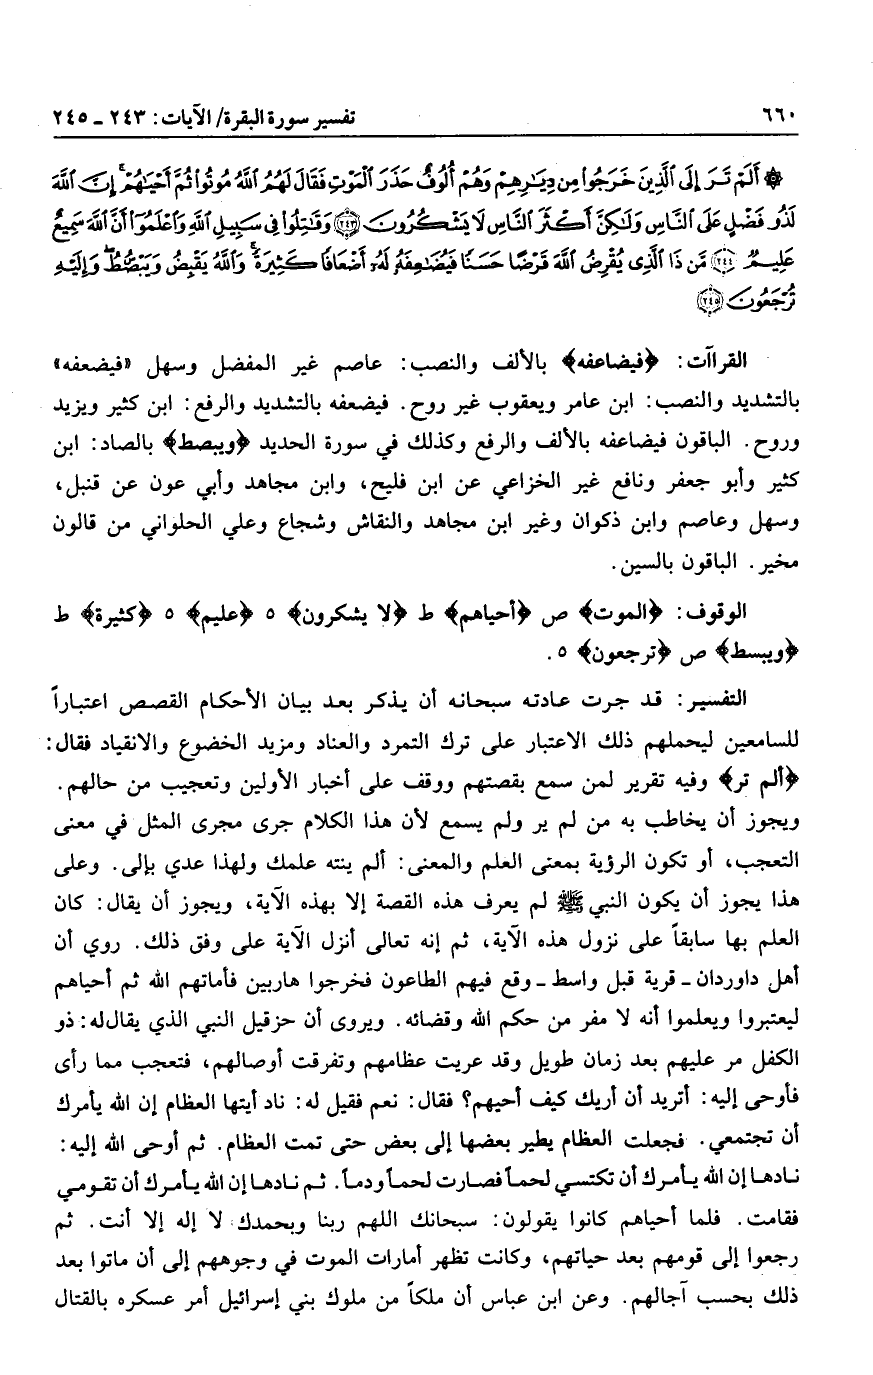 ٦٦٠
تفسير سورة البقرة/ الآيات: ٢٤٣ ـ ٢٤٥
۞ أَلَمْ تَرَ إِلَى ٱلَّذِينَ خَرَجُوا۟ مِن دِيَـٰرِهِمْ وَهُمْ أُلُوفٌ حَذَرَ ٱلْمَوْتِ فَقَالَ لَهُمُ ٱللَّهُ مُوتُوا۟ ثُمَّ أَحْيَـٰهُمْ ۚ إِنَّ ٱللَّهَ
لَذُو فَضْلٍ عَلَى ٱلنَّاسِ وَلَـٰكِنَّ أَكْثَرَ ٱلنَّاسِ لَا يَشْكُرُونَ ﴿٢٤٣﴾ وَقَـٰتِلُوا۟ فِى سَبِيلِ ٱللَّهِ وَٱعْلَمُوٓا۟ أَنَّ ٱللَّهَ سَمِيعٌ
عَلِيمٌ ﴿٢٤٤﴾ مَّن ذَا ٱلَّذِى يُقْرِضُ ٱللَّهَ قَرْضًا حَسَنًا فَيُضَـٰعِفَهُۥ لَهُۥٓ أَضْعَافًا كَثِيرَةً ۚ وَٱللَّهُ يَقْبِضُ وَيَبْصُۜطُ وَإِلَيْهِ
تُرْجَعُونَ ﴿٢٤٥﴾
القراآت: ﴿فيضاعفه﴾ بالألف والنصب: عاصم غير المفضل وسهل «فيضعفه»
بالتشديد والنصب: ابن عامر ويعقوب غير روح. فيضعفه بالتشديد والرفع: ابن كثير ويزيد
وروح. الباقون فيضاعفه بالألف والرفع وكذلك في سورة الحديد ﴿ويبصط﴾ بالصاد: ابن
كثير وأبو جعفر ونافع غير الخزاعي عن ابن فليح، وابن مجاهد وأبي عون عن قنبل،
وسهل وعاصم وابن ذكوان وغير ابن مجاهد والنقاش وشجاع وعلي الحلواني من قالون
مخير. الباقون بالسين.
الوقوف: ﴿الموت﴾ ص ﴿أحياهم﴾ ط ﴿لا يشكرون﴾ ٥ ﴿عليم﴾ ٥ ﴿كثيرة﴾ ط
﴿ويبسط﴾ ص ﴿ترجعون﴾ ٥.
التفسير: قد جرت عادته سبحانه أن يذكر بعد بيان الأحكام القصص اعتباراً
للسامعين ليحملهم ذلك الاعتبار على ترك التمرد والعناد ومزيد الخضوع والانقياد فقال:
﴿ألم تر﴾ وفيه تقرير لمن سمع بقصتهم ووقف على أخبار الأولين وتعجيب من حالهم.
ويجوز أن يخاطب به من لم ير ولم يسمع لأن هذا الكلام جرى مجرى المثل في معنى
التعجب، أو تكون الرؤية بمعنى العلم والمعنى: ألم ينته علمك ولهذا عدي بإلى. وعلى
هذا يجوز أن يكون النبي ﷺ لم يعرف هذه القصة إلا بهذه الآية، ويجوز أن يقال: كان
العلم بها سابقاً على نزول هذه الآية، ثم إنه تعالى أنزل الآية على وفق ذلك. روي أن
أهل داوردان ـ قرية قبل واسط ـ وقع فيهم الطاعون فخرجوا هاربين فأماتهم الله ثم أحياهم
ليعتبروا ويعلموا أنه لا مفر من حكم الله وقضائه. ويروى أن حزقيل النبي الذي يقال له: ذو
الكفل مر عليهم بعد زمان طويل وقد عريت عظامهم وتفرقت أوصالهم، فتعجب مما رأى
فأوحى إليه: أتريد أن أريك كيف أحيهم؟ فقال: نعم فقيل له: ناد أيتها العظام إن الله يأمرك
أن تجتمعي. فجعلت العظام يطير بعضها إلى بعض حتى تمت العظام. ثم أوحى الله إليه:
نادها إن الله يأمرك أن تكتسي لحماً فصارت لحماً ودماً. ثم نادها إن الله يأمرك أن تقومي
فقامت. فلما أحياهم كانوا يقولون: سبحانك اللهم ربنا وبحمدك لا إله إلا أنت. ثم
رجعوا إلى قومهم بعد حياتهم، وكانت تظهر أمارات الموت في وجوههم إلى أن ماتوا بعد
ذلك بحسب آجالهم. وعن ابن عباس أن ملكاً من ملوك بني إسرائيل أمر عسكره بالقتال